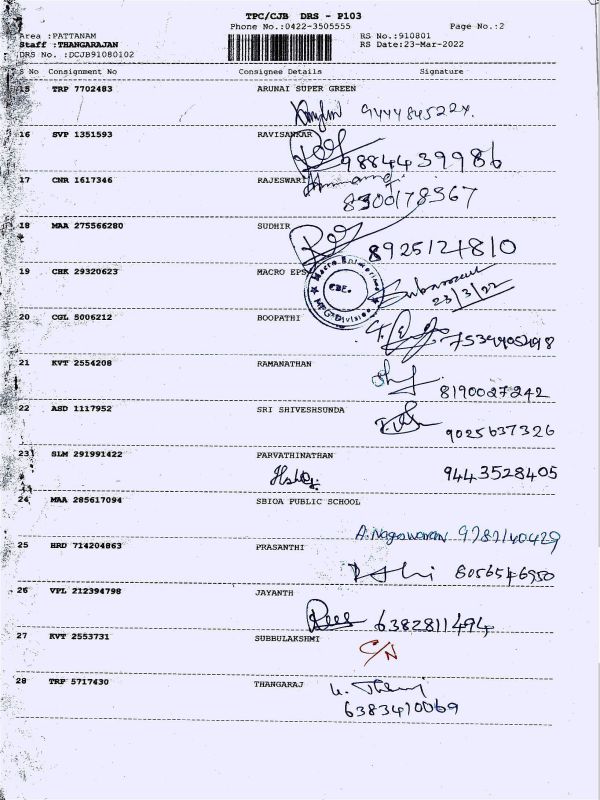 TPC/CJB DRS - P103
Phone No.:0422-3505555 Page No.:2
Area :PATTANAM RS No.:910801
Staff :THANGARAJAN RS Date:23-Mar-2022
DRS No. :DCJB91080102
S No Consignment No Consignee Details Signature
15 TRP 7702483 ARUNAI SUPER GREEN
16 SVP 1351593 RAVISANKAR
9884439986
17 CNR 1617346 RAJESWARI
8300178367
18 MAA 275566280 SUDHIR
8925124810
19 CHK 29320623 MACRO EPS
Macro Enterprises
CBE.
MFG. Division
23/3/22
20 CGL 5006212 BOOPATHI
21 KVT 2554208 RAMANATHAN
8190027242
22 ASD 1117952 SRI SHIVESHSUNDA
9025637326
23 SLM 291991422 PARVATHINATHAN
9443528405
24 MAA 285617094 SBIOA PUBLIC SCHOOL
25 HRD 714204863 PRASANTHI
26 VPL 212394798 JAYANTH
6382811494
27 KVT 2553731 SUBBULAKSHMI
C/N
28 TRP 5717430 THANGARAJ
6383410069